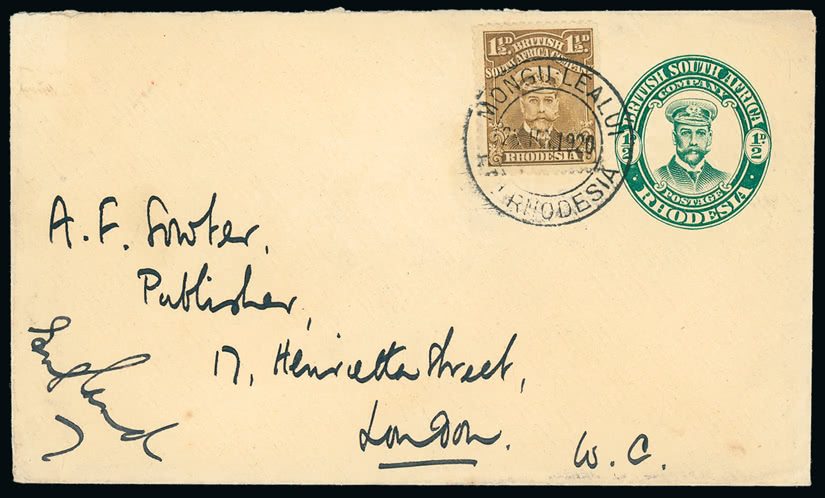 1½D BRITISH 1½D
SOUTH AFRICA COMPANY
RHODESIA
MONGU. LEALUI
1920
RHODESIA
BRITISH SOUTH AFRICA
COMPANY
½ ½D
POSTAGE
RHODESIA
A. F. Sowter,
Publisher,
17, Henrietta Street,
London. W. C.
England